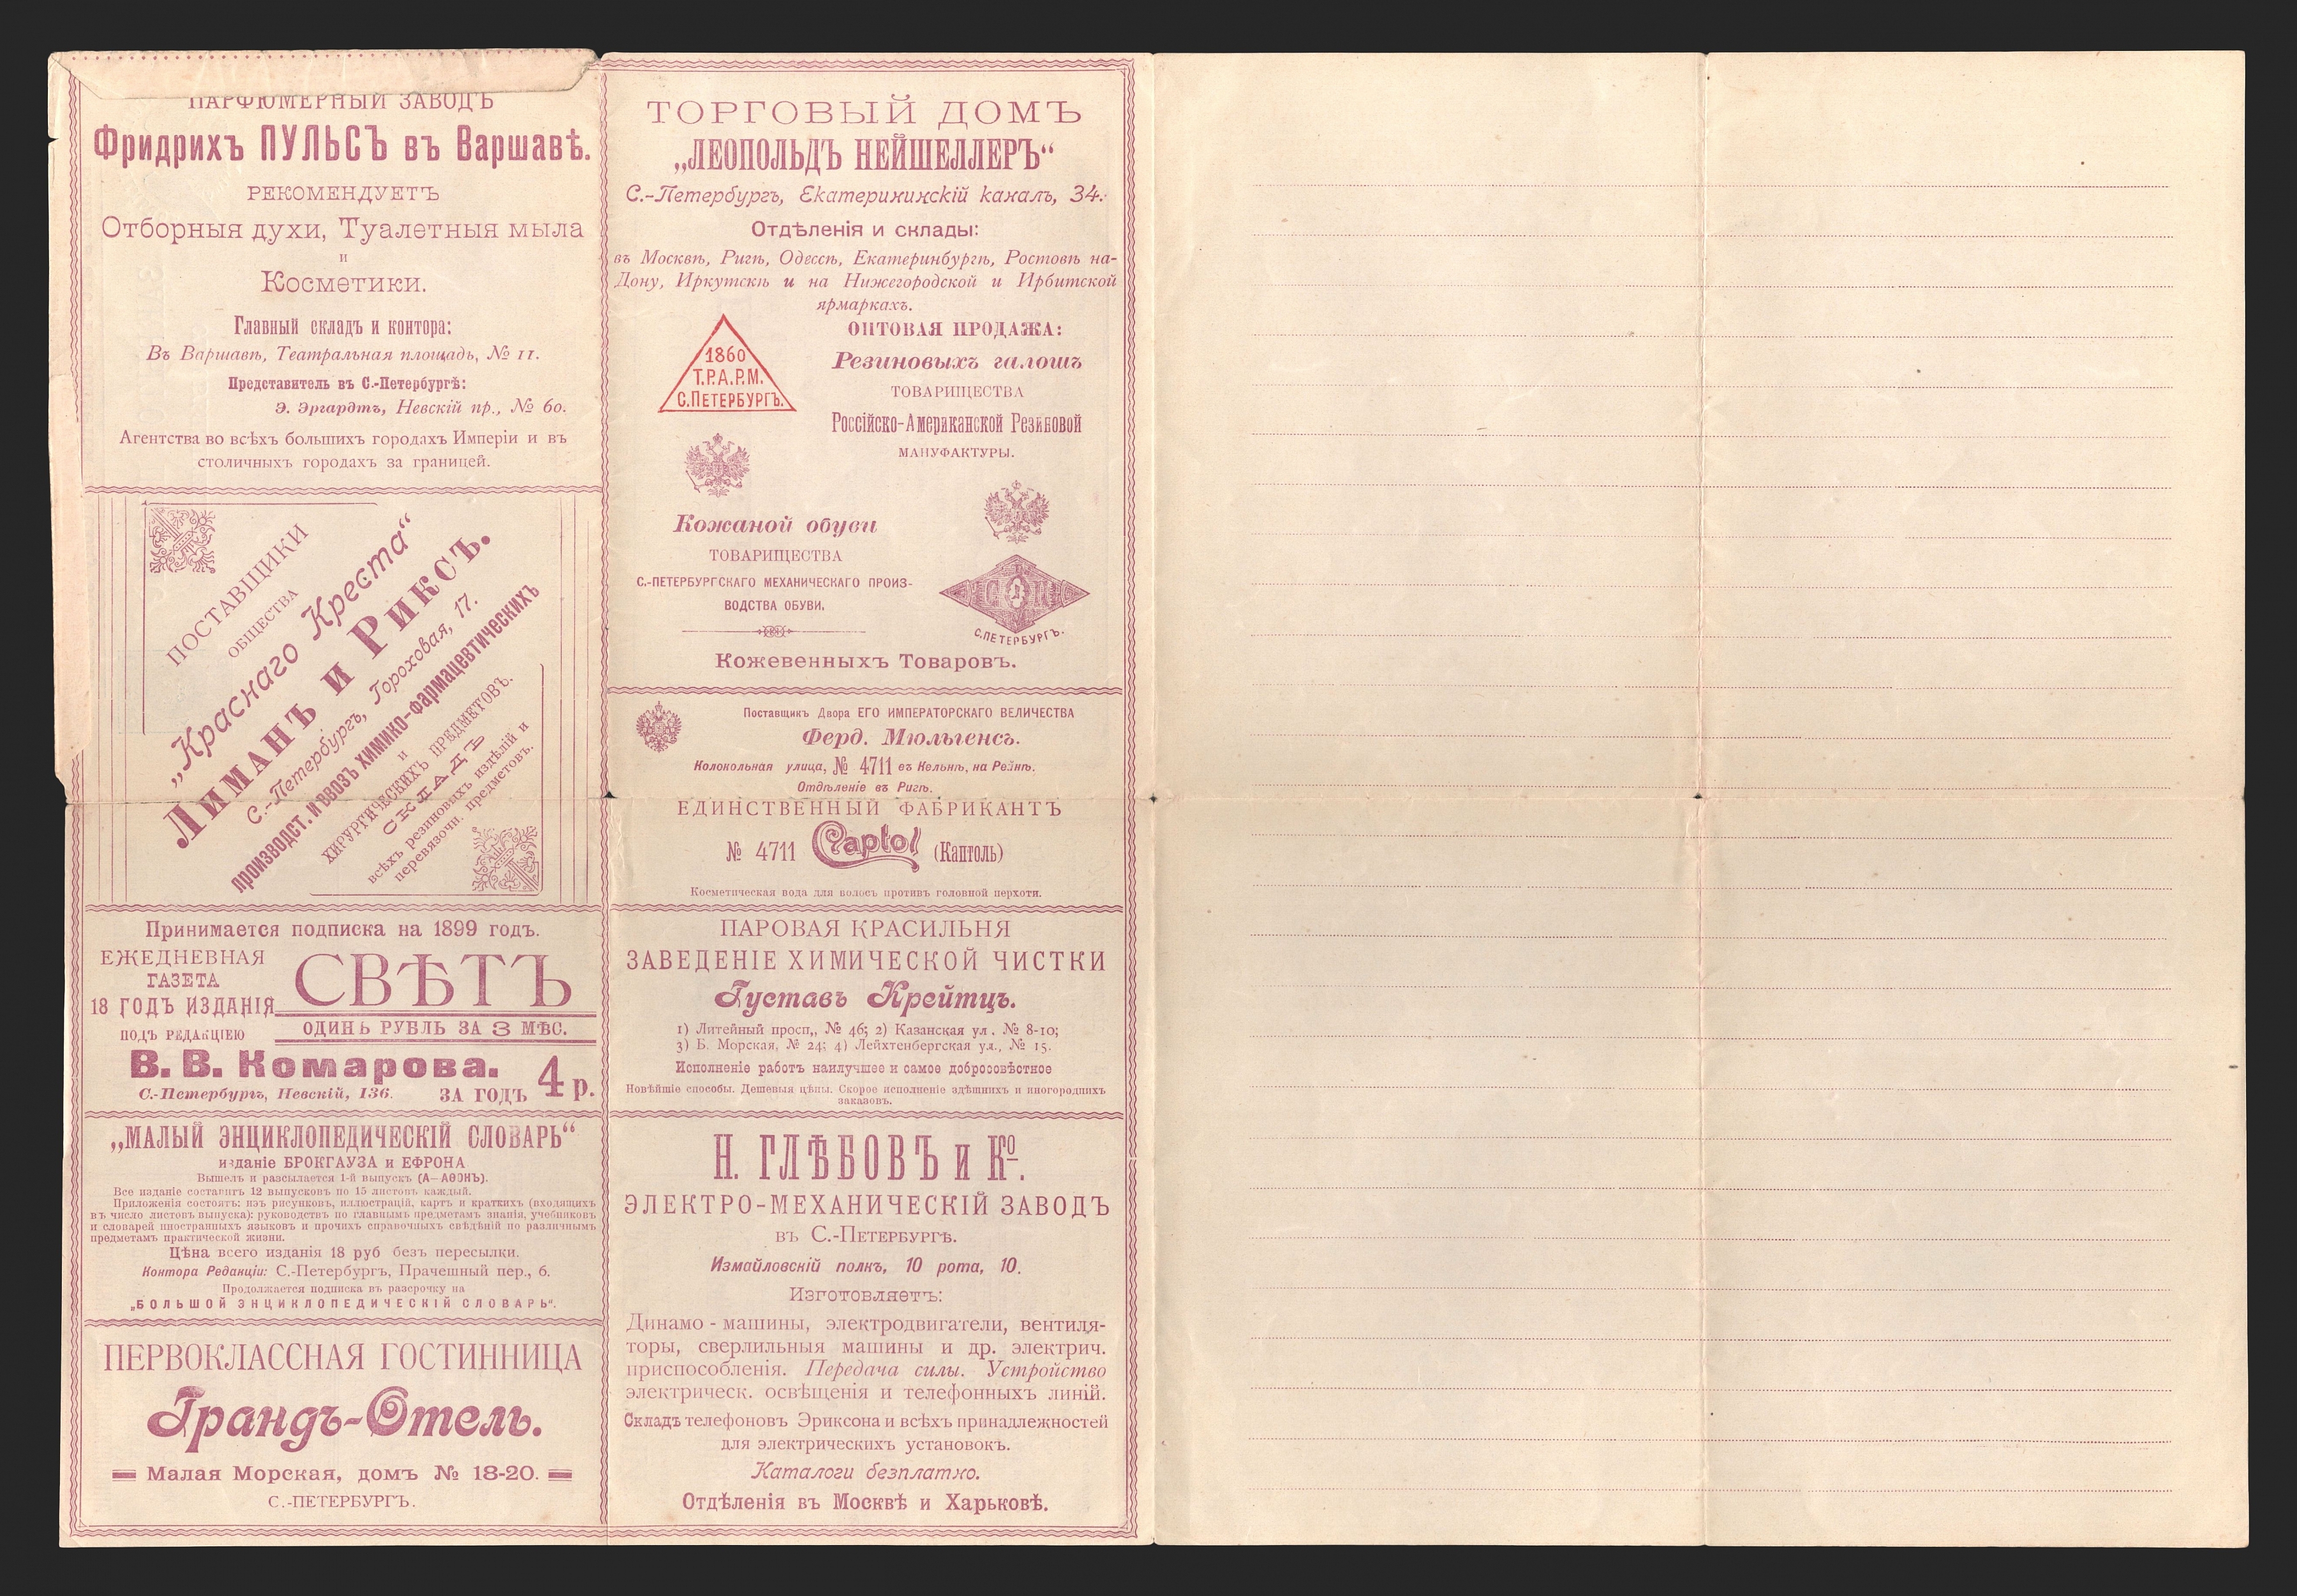 ПАРФЮМЕРНЫЙ ЗАВОДЪ
Фридрихъ ПУЛЬСЪ въ Варшавѣ.
РЕКОМЕНДУЕТЪ
Отборныя духи, Туалетныя мыла
и
Косметики.
Главный складъ и контора:
Въ Варшавѣ, Театральная площадь, № 11.
Представитель въ С.-Петербургѣ:
Э. Эргардтъ, Невскій пр., № 60.
Агентства во всѣхъ большихъ городахъ Имперіи и въ
столичныхъ городахъ за границей.
ПОСТАВЩИКИ
ОБЩЕСТВА
„Краснаго Креста“
Лиманъ и Риксъ.
С.-Петербургъ, Гороховая, 17.
производст. и ввозъ химико-фармацевтическихъ
и
хирургическихъ предметовъ.
СКЛАДЪ
всѣхъ резиновыхъ издѣлій и
перевязочн. предметовъ.
Принимается подписка на 1899 годъ.
ЕЖЕДНЕВНАЯ
ГАЗЕТА
18 ГОДЪ ИЗДАНІЯ
СВѢТЪ
ПОДЪ РЕДАКЦІЕЮ
ОДИНЬ РУБЛЬ ЗА 3 МѢС.
В. В. Комарова.
С.-Петербургъ, Невскій, 136.
ЗА ГОДЪ 4 р.
„МАЛЫЙ ЭНЦИКЛОПЕДИЧЕСКІЙ СЛОВАРЬ“
изданіе БРОКГАУЗА и ЕФРОНА
Вышелъ и разсылается 1-й выпускъ (А—АѲОНЪ).
Все изданіе составитъ 12 выпусковъ по 15 листовъ каждый.
Приложенія состоятъ: изъ рисунковъ, иллюстрацій, картъ и краткихъ (входящихъ
въ число листовъ выпуска): руководствъ по главнымъ предметамъ знанія, учебниковъ
и словарей иностранныхъ языковъ и прочихъ справочныхъ свѣдѣній по различнымъ
предметамъ практической жизни.
Цѣна всего изданія 18 руб безъ пересылки.
Контора Редакціи: С.-Петербургъ, Прачешный пер., 6.
Продолжается подписка въ разсрочку на
„БОЛЬШОЙ ЭНЦИКЛОПЕДИЧЕСКІЙ СЛОВАРЬ“.
ПЕРВОКЛАССНАЯ ГОСТИННИЦА
Грандъ-Отель.
Малая Морская, домъ № 18-20.
С.-ПЕТЕРБУРГЪ.
ТОРГОВЫЙ ДОМЪ
„ЛЕОПОЛЬДЪ НЕЙШЕЛЛЕРЪ“
С.-Петербургъ, Екатерининскій каналъ, 34.
Отдѣленія и склады:
въ Москвѣ, Ригѣ, Одессѣ, Екатеринбургѣ, Ростовѣ на-
Дону, Иркутскѣ и на Нижегородской и Ирбитской
ярмаркахъ.
1860
Т.Р.А.Р.М.
С.ПЕТЕРБУРГЪ.
ОПТОВАЯ ПРОДАЖА:
Резиновыхъ галошъ
ТОВАРИЩЕСТВА
Россійско-Американской Резиновой
МАНУФАКТУРЫ.
Кожаной обуви
ТОВАРИЩЕСТВА
С.-ПЕТЕРБУРГСКАГО МЕХАНИЧЕСКАГО ПРОИЗ-
ВОДСТВА ОБУВИ.
С.ПЕТЕРБУРГЪ.
Кожевенныхъ Товаровъ.
Поставщикъ Двора ЕГО ИМПЕРАТОРСКАГО ВЕЛИЧЕСТВА
Ферд. Мюльгенсъ.
Колокольная улица, № 4711 въ Кельнѣ, на Рейнѣ.
Отдѣленіе въ Ригѣ.
ЕДИНСТВЕННЫЙ ФАБРИКАНТЪ
№ 4711 Captol (Каптоль)
Косметическая вода для волосъ противъ головной перхоти.
ПАРОВАЯ КРАСИЛЬНЯ
ЗАВЕДЕНІЕ ХИМИЧЕСКОЙ ЧИСТКИ
Густавъ Крейтцъ.
1) Литейный просп,, № 46; 2) Казанская ул. № 8-10;
3) Б. Морская, № 24; 4) Лейхтенбергская ул., № 15.
Исполненіе работъ наилучшее и самое добросовѣстное
Новѣйшіе способы. Дешевыя цѣны. Скорое исполненіе здѣшнихъ и иногороднихъ
заказовъ.
Н. ГЛѢБОВЪ и Кº.
ЭЛЕКТРО-МЕХАНИЧЕСКІЙ ЗАВОДЪ
въ С.-Петербургѣ.
Измайловскій полкъ, 10 рота, 10.
Изготовляетъ:
Динамо-машины, электродвигатели, вентиля-
торы, сверлильныя машины и др. электрич.
приспособленія. Передача силы. Устройство
электрическ. освѣщенія и телефонныхъ линій.
Складъ телефоновъ Эриксона и всѣхъ принадлежностей
для электрическихъ установокъ.
Каталоги безплатно.
Отдѣленія въ Москвѣ и Харьковѣ.